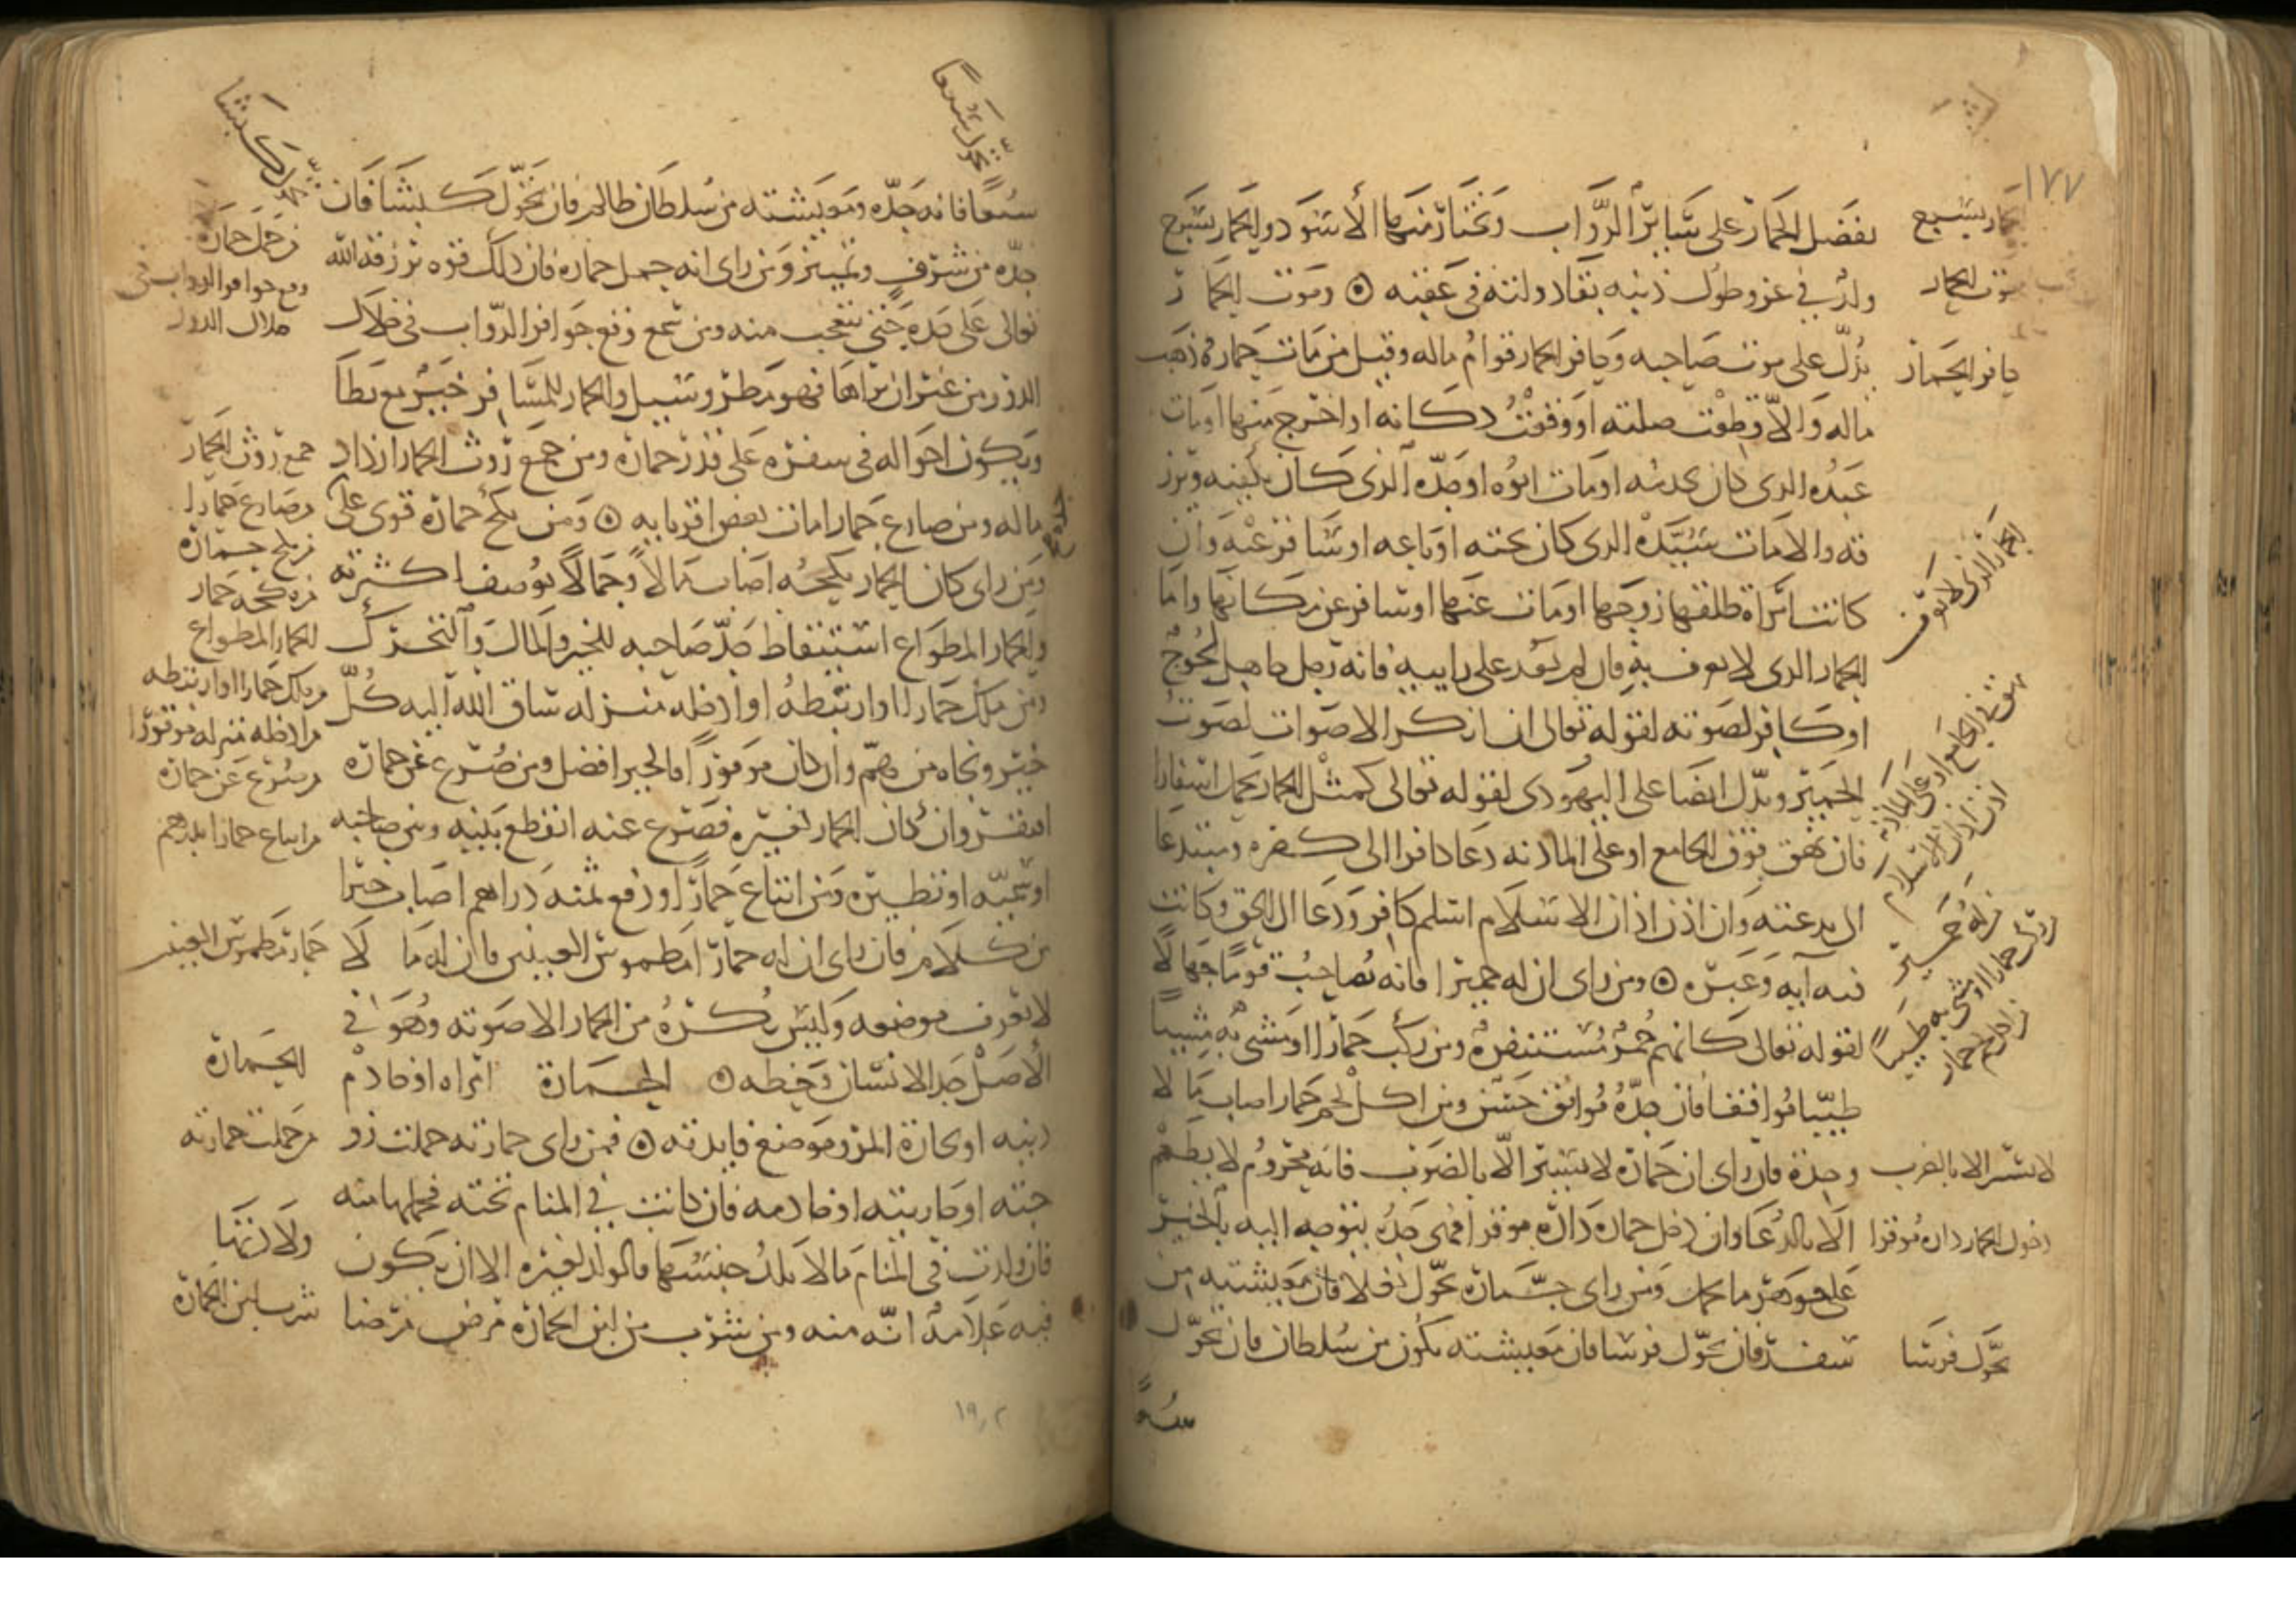 ١٧٧
يفضل الحمار على سائر الدواب ويختار منها الأسود والحمار بسرج
ولد في عز وطول ذنبه بقاء دولته في عقبه ۞ وموت الحمار
يدل على موت صاحبه وحافر الحمار قوام ماله وقيل من مات حماره ذهب
ماله والا قطعت صلته او وقعت دكانه او اخرج منها او مات
عبده الدى كان يخدمه او مات ابوه او جده الذى كان يكفيه ويرز
قه والا مات سيده الدى كان تحته او باعه او سافر عنه وان
كانت امراة طلقها زوجها او مات عنها او سافر عن مكانها واما
الحمار الدى لا يعرف ربه فان لم يعد على رابيه فانه رجل جاهل لجوج
او كافر لصوته لقوله تعالى ان انكر الاصوات لصوت
الحمير ويدل ايضا على اليهودى لقوله تعالى كمثل الحمار يحمل اسفارا
فان نهق فوق الجامع او على المادنه دعا كافرا الى كفره ومبتدعا
الى بدعته وان اذن اذان الاسلام اسلم كافر ودعا الى الحق وكانت
فيه آيه وعبره ۞ ومن راى ان له حميرا فانه يصاحب قوما جهالا
لقوله تعالى كانهم حمر مستنفرة ومن ركب حمارا او مشى به مشيا
طيبا موافقا فان جده موافق حسن ومن اكل لحم حمار اصاب مالا
وجدة فان راى ان حماره لا يسير الا بالضرب فانه محروم لا يطعم
الا بالدعا وان دخل حماره داره موقرا فهى جده يتوجه اليه بالخير
على جوهر ما يحمل ومن راى حماره تحول بغلا فان معيشته من
سفر فان تحول فرسا فان معيشته تكون من سلطان فان تحول
سبعا
حمار بسرج
موت الحمار
حافر الحمار
الحمار الذى لا يعرف
نهق في الجامع او على المادنة
اذن اذان الاسلام
له حمير
ركب حمارا او مشى به طيبا
اكل لحم حمار
لا يسير الا بالضرب
دخول الحمار داره موقرا
تحول فرسا
سبعا فانه جده ومعيشته من سلطان ظالم فان تحول كبشا فان
جده من شرف وتمييز ومن راى انه حمل حماره فان ذلك قوه يرزقه الله
تعالى على جده حتى يتعجب منه ومن سمع وقع حوافر الدواب في خلال
الدور من غير ان يراها فهو مطر وسيل والحمار للمسافر خير مع بطا
وتكون احواله في سفره على قدر حماره ومن جمع روث الحمار ازداد
ماله ومن صارع حمارا مات بعض اقربايه ۞ ومن نكح حماره قوى على
ومن راى كان الحمار ينكحه اصاب مالا وجمالا لا يوصف لكثرته
والحمار المطواع استيقاظ جد صاحبه للخير والمال والتحرك
ومن ملك حمارا او ارتبطه او ادخله منزله ساق الله اليه كل
خير ونجاه من هم وان كان موقورا فالخير افضل ومن صرع عن حماره
افتقر وان كان الحمار لغيره فصرع عنه انقطع بينه وبين صاحبه
او سميه او نظيره ومن ابتاع حمارا ودفع ثمنه دراهم اصاب خيرا
من كلام فان راى ان له حمارا مطموس العينين فان له مالا
لا يعرف موضعه وليس يكره من الحمار الا صوته وهو في
الاصل جد الانسان وحظه ۞ الحماره امراه او خادم
دينه او تجارة المرء وموضع فايدته ۞ فمن راى حمارته حملت زو
جته او جاريته او خادمه فان كانت في المنام تحته فحملها منه
فان ولدت في المنام مالا يلد جنسها فالولد لغيره الا ان يكون
فيه علامه انه منه ومن شرب من لبن الحمارة مرض مرضا
تحول كبشا
من حمل حماره
وقع حوافر الدواب في
خلال الدور
جمع روث الحمار
وصارع حمارا
من نكح حماره
من نكحه حمار
الحمار المطواع
من ملك حمارا او ارتبطه
من ادخله منزله موقورا
من صرع عن حماره
من ابتاع حمارا بدراهم
حمار مطموس العينين
الحمارة
من حملت حمارته
ولادتها
شرب لبن الحمارة